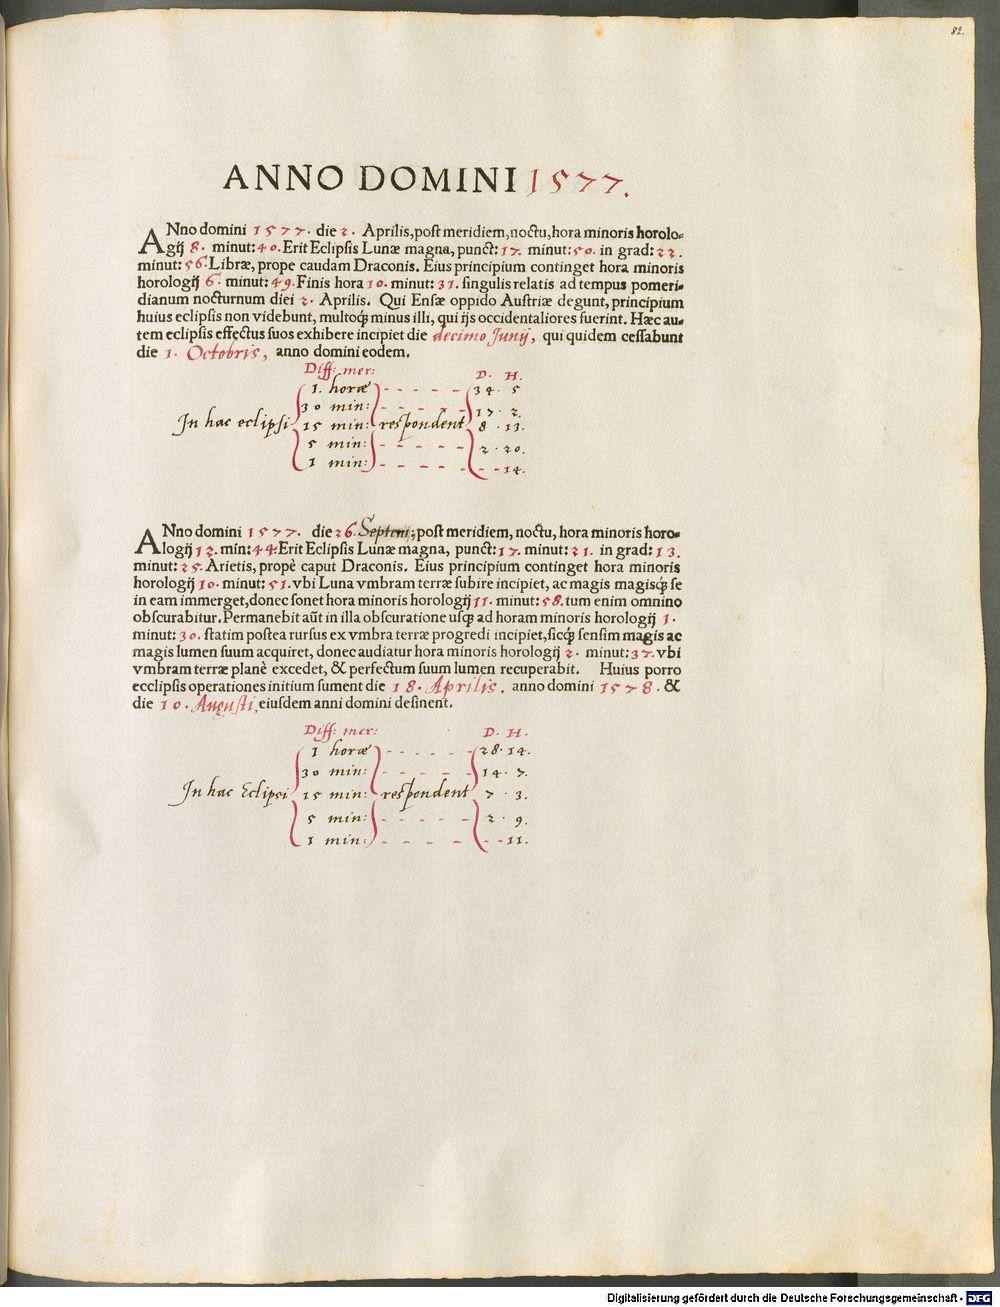 82.
ANNO DOMINI 1577.
ANno domini 1577. die 2. Aprilis, post meridiem, noctu, hora minoris horolo-
gij 8. minut: 40. Erit Eclipsis Lunæ magna, punct: 17. minut: 50. in grad: 22.
minut: 56. Libræ, prope caudam Draconis. Eius principium continget hora minoris
horologij 6. minut: 49. Finis hora 10. minut: 31. singulis relatis ad tempus pomeri-
dianum nocturnum diei 2. Aprilis. Qui Ensæ oppido Austriæ degunt, principium
huius eclipsis non videbunt, multoq́; minus illi, qui ijs occidentaliores fuerint. Hæc au-
tem eclipsis effectus suos exhibere incipiet die decimo Junij, qui quidem cessabunt
die 1. Octobris, anno domini eodem.
Diff: mer: D. H.
1. horæ - - - - - 34. 5
30 min: - - - - - 17. 2.
In hac eclipsi 15 min: respondent 8. 13.
5 min: - - - - - 2. 20.
1 min: - - - - - - - 14.
ANno domini 1577. die 26. Septem: post meridiem, noctu, hora minoris horo-
logij 12. min: 44. Erit Eclipsis Lunæ magna, punct: 17. minut: 21. in grad: 13.
minut: 25. Arietis, propè caput Draconis. Eius principium continget hora minoris
horologij 10. minut: 51. vbi Luna vmbram terræ subire incipiet, ac magis magisq́; se
in eam immerget, donec sonet hora minoris horologij 11. minut: 58. tum enim omnino
obscurabitur. Permanebit aūt in illa obscuratione usq́; ad horam minoris horologij 1.
minut: 30. statim postea rursus ex vmbra terræ progredi incipiet, sicq́; sensim magis ac
magis lumen suum acquiret, donec audiatur hora minoris horologij 2. minut: 37. vbi
vmbram terræ planè excedet, & perfectum suum lumen recuperabit. Huius porro
ecclipsis operationes initium sument die 18. Aprilis. anno domini 1578. &
die 10. Augusti, eiusdem anni domini desinent.
Diff: mer: D. H.
1 horæ - - - - - 28. 14.
30 min: - - - - - 14. 7.
In hac Eclipsi 15 min: respondent 7. 3.
5 min: - - - - - 2. 9.
1 min: - - - - - - 11.
Digitalisierung gefördert durch die Deutsche Forschungsgemeinschaft - DFG